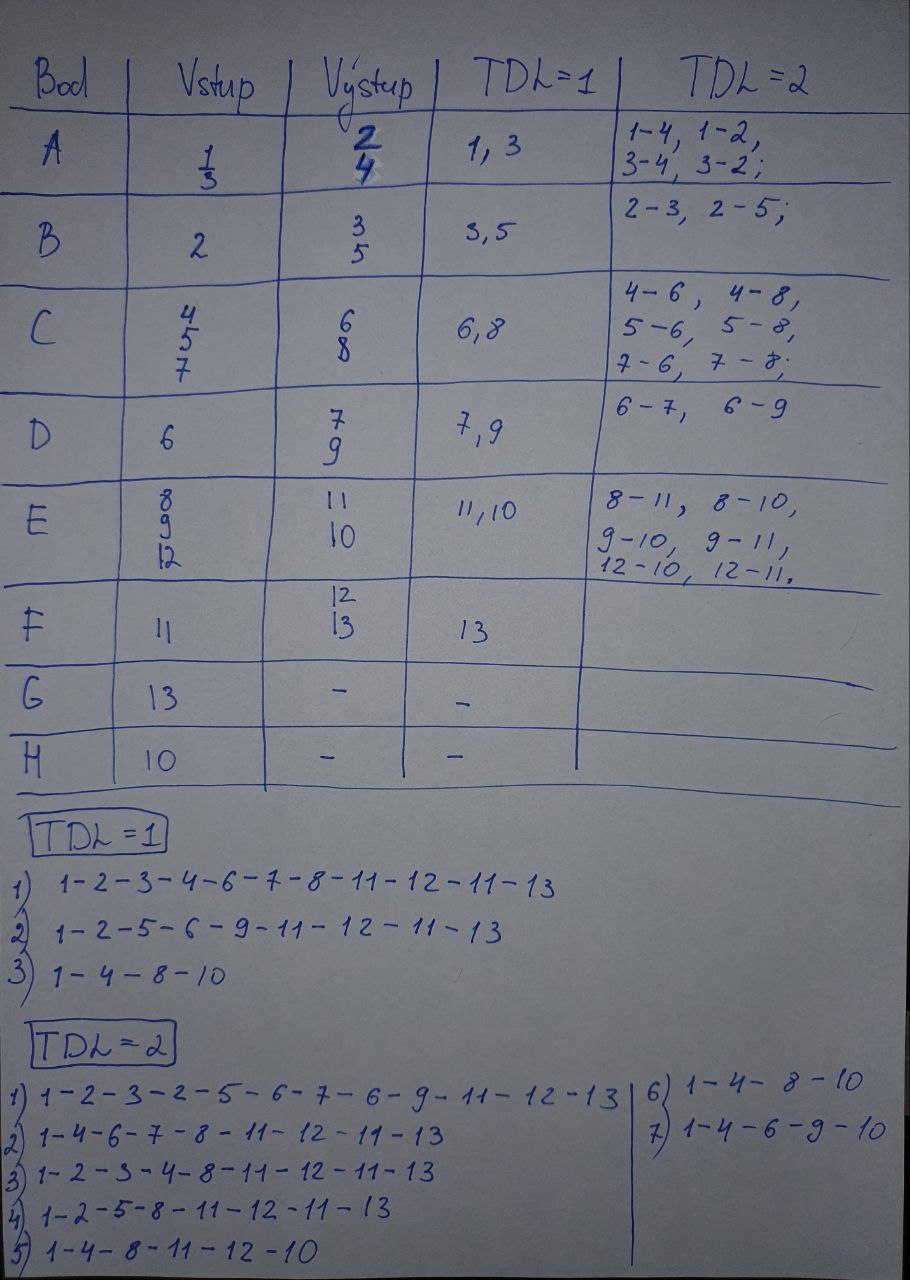 Bod Vstup Výstup TDL=1 TDL=2
A 1 3 2 4 1, 3 1-4, 1-2,
3-4, 3-2;
B 2 3 5 3,5 2-3, 2-5;
C 4 5 7 6 8 6,8 4-6, 4-8,
5-6, 5-8,
7-6, 7-8;
D 6 7 9 7,9 6-7, 6-9
E 8 9 12 11 10 11,10 8-11, 8-10,
9-10, 9-11,
12-10, 12-11.
F 11 12 13 13
G 13 - -
H 10 - -
TDL=1
1) 1-2-3-4-6-7-8-11-12-11-13
2) 1-2-5-6-9-11-12-11-13
3) 1-4-8-10
TDL=2
1) 1-2-3-2-5-6-7-6-9-11-12-13
2) 1-4-6-7-8-11-12-11-13
3) 1-2-3-4-8-11-12-11-13
4) 1-2-5-8-11-12-11-13
5) 1-4-8-11-12-10
6) 1-4-8-10
7) 1-4-6-9-10